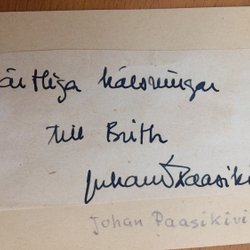 ärtliga hälsningar
till Brith
Juhani Paasiki
Johan Paasikivi